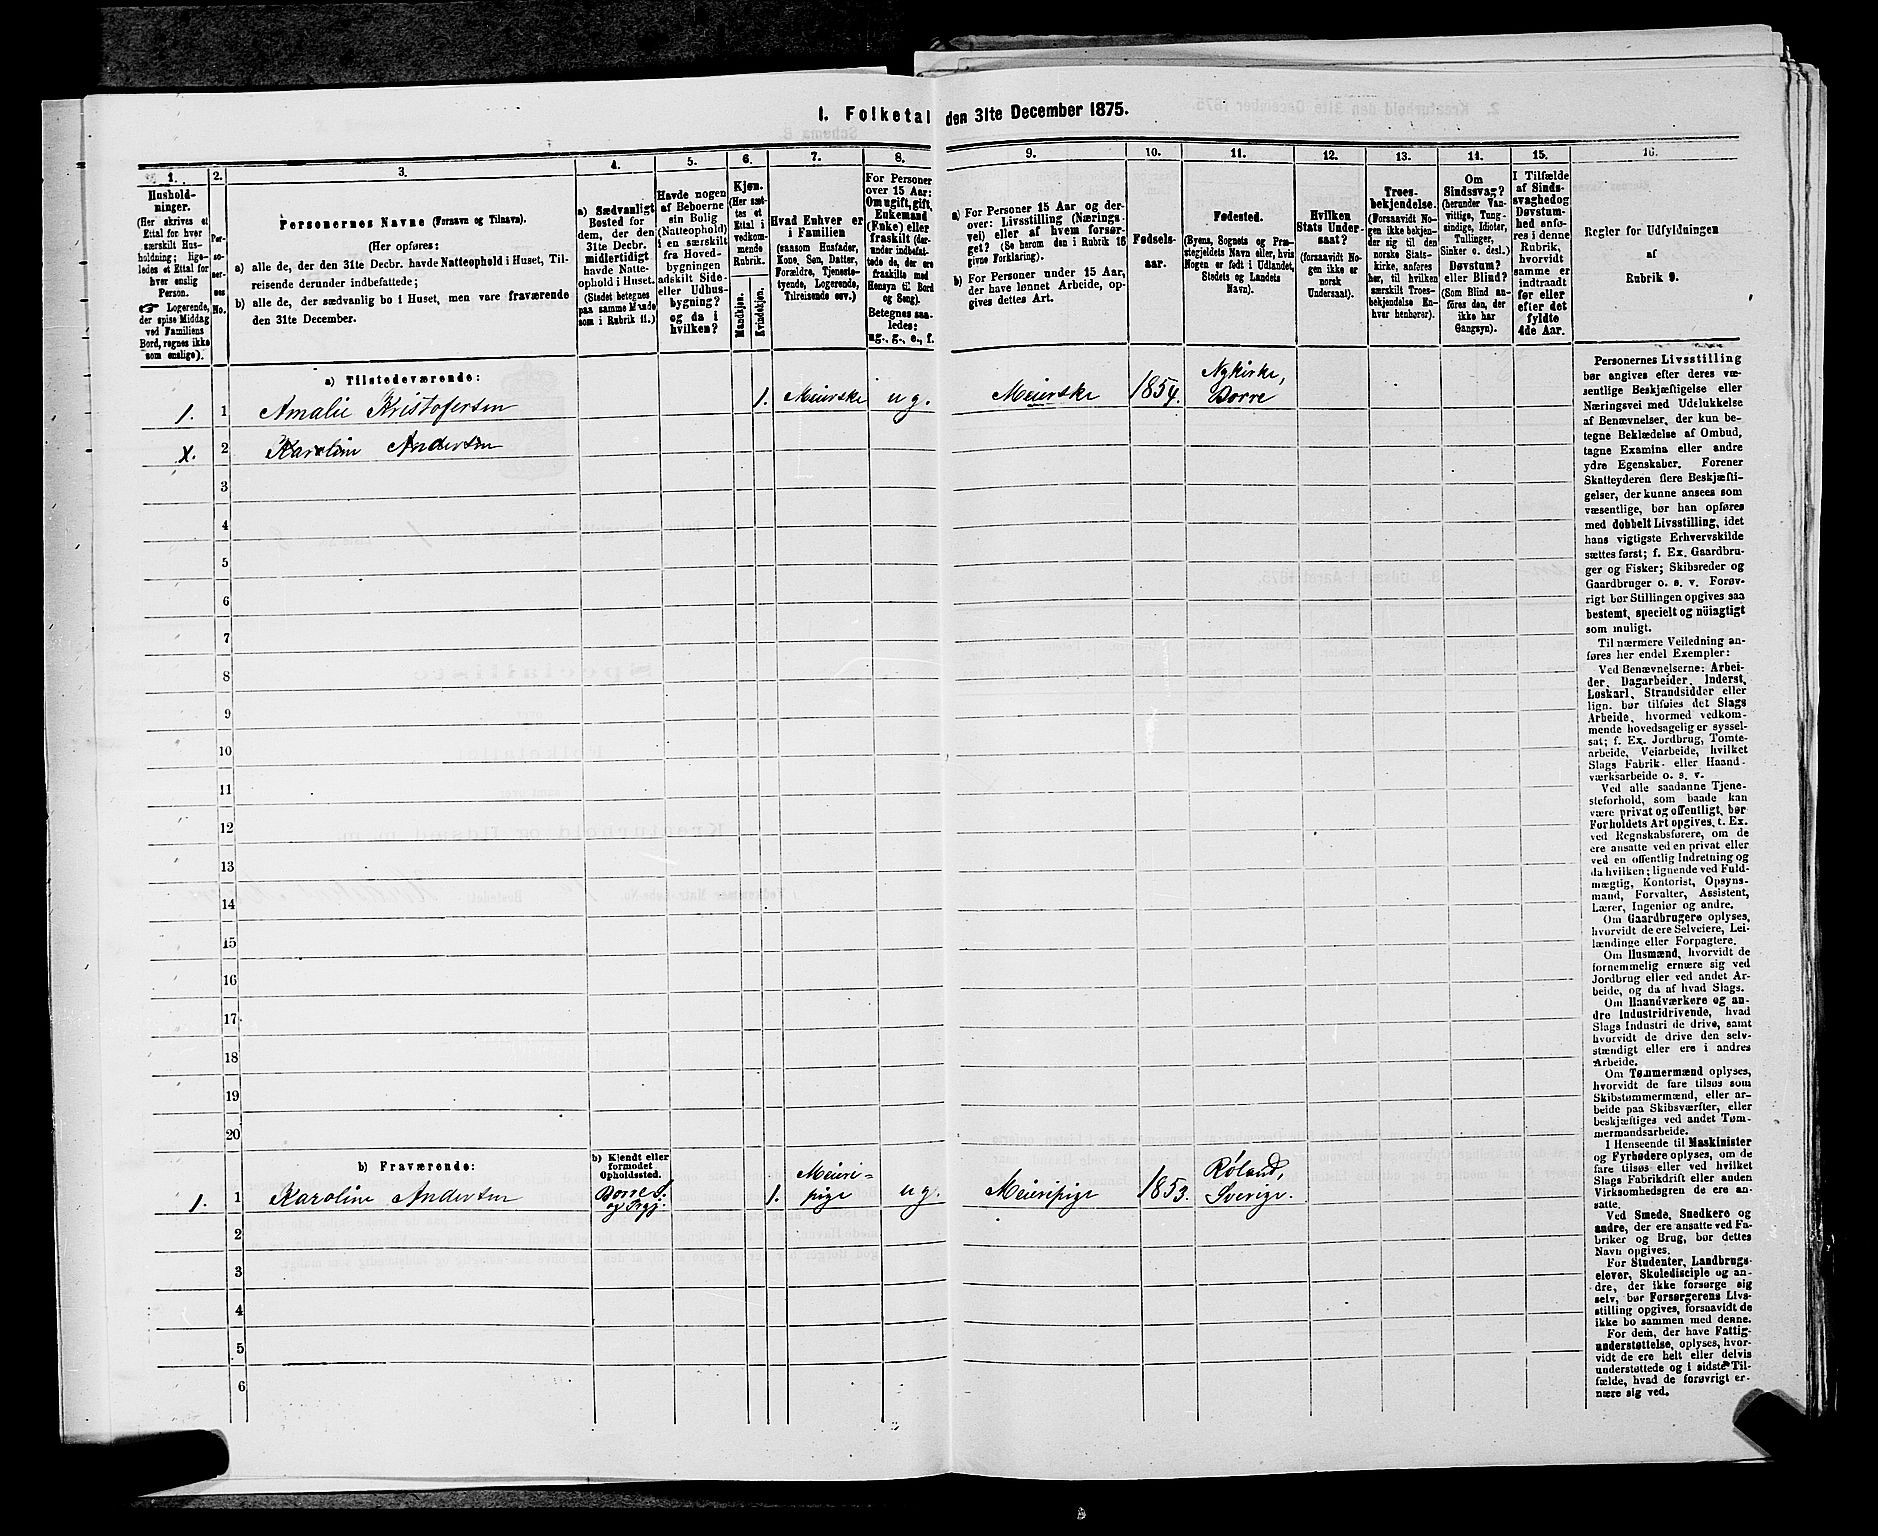 1. Folketal den 31te December 1875.
1.
Hushold-
ninger.
(Her skrives et
Ettal for hver
særskilt Hus-
holdning; lige-
ledes et Ettal for
hver enslig
Person.
☞ Logerende,
der spise Middag
ved Familiens
Bord, regnes ikke
som enslige).
2.
Per-
so-
ner-
nes
No.
3.
Personernes Navne (Fornavn og Tilnavn).
(Her opføres:
a) alle de, der den 31te Decbr. havde Natteophold i Huset, Til-
reisende derunder indbefattede;
b) alle de, der sædvanlig bo i Huset, men vare fraværende
den 31te December.
4.
a) Sædvanligt
Bosted for
dem, der den
31te Decbr.
midlertidigt
havde Natte-
ophold i Huset.
(Stedet betegnes
paa samme Maade
som i Rubrik 11.)
5.
Havde nogen
af Beboerne
sin Bolig
(Natteophold)
i en særskilt
fra Hoved-
bygningen
adskilt Side-
eller Udhus-
bygning?
og da i
hvilken?
6.
Kjøn.
(Her sæt-
tes et
Ettal i
vedkom-
mende
Rubrik.
Mandkjøn.
Kvindekjøn.
7.
Hvad Enhver er
i Familien
(saasom Husfader,
Kone, Søn, Datter,
Forældre, Tjeneste-
tyende, Logerende,
Tilreisende osv.)
8.
For Personer
over 15 Aar:
Om ugift, gift,
Enkemand
(Enke) eller
fraskilt (der-
under indbefat-
tede de, der ere
fraskilte med
Hensyn til Bord
og Seng).
Betegnes saa-
ledes:
ug., g., e., f.
9.
a) For Personer 15 Aar og der-
over: Livsstilling (Nærings-
vei) eller af hvem forsør-
get? (Se herom den i Rubrik 16
givne Forklaring).
b) For Personer under 15 Aar,
der have lønnet Arbeide, op-
gives dettes Art.
10.
Fødsels-
aar.
11.
Fødested.
(Byens, Sognets og Præ-
stegjeldets Navn eller, hvis
Nogen er født i Udlandet,
Stedets og Landets
Navn).
12.
Hvilken
Stats Under-
saat?
(forsaavidt No-
gen ikke er
norsk
Undersaat).
13.
Troes-
bekjendelse.
(Forsaavidt No-
gen ikke bekjen-
der sig til den
norske Stats-
kirke, anføres
her, til hvilken
særskilt Troes-
bekjendelse En-
hver henhører).
14.
Om
Sindssvag?
(herunder Van-
vittige, Tung-
sindige, Idioter,
Tullinger,
Sinker o. desl.).
Døvstum?
eller Blind?
(Som Blind an-
føres den, der
ikke har
Gangsyn).
15.
I Tilfælde
af Sinds-
svaghed og
Døvstum-
hed anfø-
res i denne
Rubrik,
hvorvidt
samme er
indtraadt
før eller
efter det
fyldte
4de Aar.
16.
Regler for Udfyldningen
af
Rubrik 9.
a) Tilstedeværende:
1. 1 Amalie Kristofersen 1. Meierske ug. Meierske 1854. Nykirke,
Borre
x. 2 Karoline Andersen
3
4
5
6
7
8
9
10
11
12
13
14
15
16
17
18
19
20
b) Fraværende:
b) Kjendt eller
formodet
Opholdssted.
1. 1 Karoline Andersen Borre S.
og Prgj. 1. Meieri-
pige ug. Meieripige 1853. Röland,
Sverige.
2
3
4
5
6
Personernes Livsstilling
bør angives efter deres væ-
sentlige Beskjæftigelse eller
Næringsvei med Udelukkelse
af Benævnelser, der kun be-
tegne Beklædelse af Ombud,
tagne Examina eller andre
ydre Egenskaber. Forener
Skatteyderen flere Beskjæfti-
gelser, der kunne ansees som
væsentlige, bør han opføres
med dobbelt Livsstilling, idet
hans vigtigste Erhvervskilde
sættes først; f. Ex. Gaardbru-
ger og Fisker; Skibsreder og
Gaardbruger o. s. v. Forøv-
rigt bør Stillingen opgives saa
bestemt, specielt og nøiagtigt
som muligt.
Til nærmere Veiledning an-
føres her endel Exempler:
Ved Benævnelserne: Arbei-
der, Dagarbeider, Inderst,
Løskarl, Strandsidder eller
lign. bør tilføies det Slags
Arbeide, hvormed vedkom-
mende hovedsagelig er syssel-
sat; f. Ex. Jordbrug, Tomte-
arbeide, Veiarbeide, hvilket
Slags Fabrik- eller Haand-
værksarbeide o. s. v.
Ved alle saadanne Tjene-
steforhold, som baade kan
være privat og offentligt, bør
Forholdets Art opgives, t. Ex.
ved Regnskabsførere, om de
ere ansatte ved en privat eller
ved en offentlig Indretning og
da hvilken; lignende ved Fuld-
mægtig, Kontorist, Opsyns-
mand, Forvalter, Assistent,
Lærer, Ingeniør og andre.
Om Gaardbrugere oplyses,
hvorvidt de ere Selveiere, Lei-
lændinge eller Forpagtere.
Om Husmænd, hvorvidt de
fornemmelig ernære sig ved
Jordbrug eller ved andet Ar-
beide, og da af hvad Slags.
Om Haandværkere og an-
dre Industridrivende, hvad
Slags Industri de drive, samt
hvorvidt de drive den selv-
stændigt eller ere i andres
Arbeide.
Om Tømmermænd oplyses,
hvorvidt de fare tilsøs som
Skibstømmermænd, eller ar-
beide paa Skibsværfter, eller
beskjæftiges ved andet Tøm-
mermandsarbeide.
I Henseende til Maskinister
og Fyrbødere oplyses, om de
fare tilsøs eller ved hvilket
Slags Fabrikdrift eller anden
Virksomhedsgren de ere an-
satte.
Ved Smede, Snedkere og
andre, der ere ansatte ved Fa-
briker og Brug, bør dettes
Navn opgives.
For Studenter, Landbrugs-
elever, Skoledisciple og an-
dre, der ikke forsørge sig
selv, bør Forsørgerens Livs-
stilling opgives, forsaavidt de
ikke bo sammen med denne.
For dem, der have Fattig-
understøttelse, oplyses, hvor-
vidt de ere helt eller delvis
understøttede og i sidste Til-
fælde, hvad de forøvrigt er-
nære sig ved.